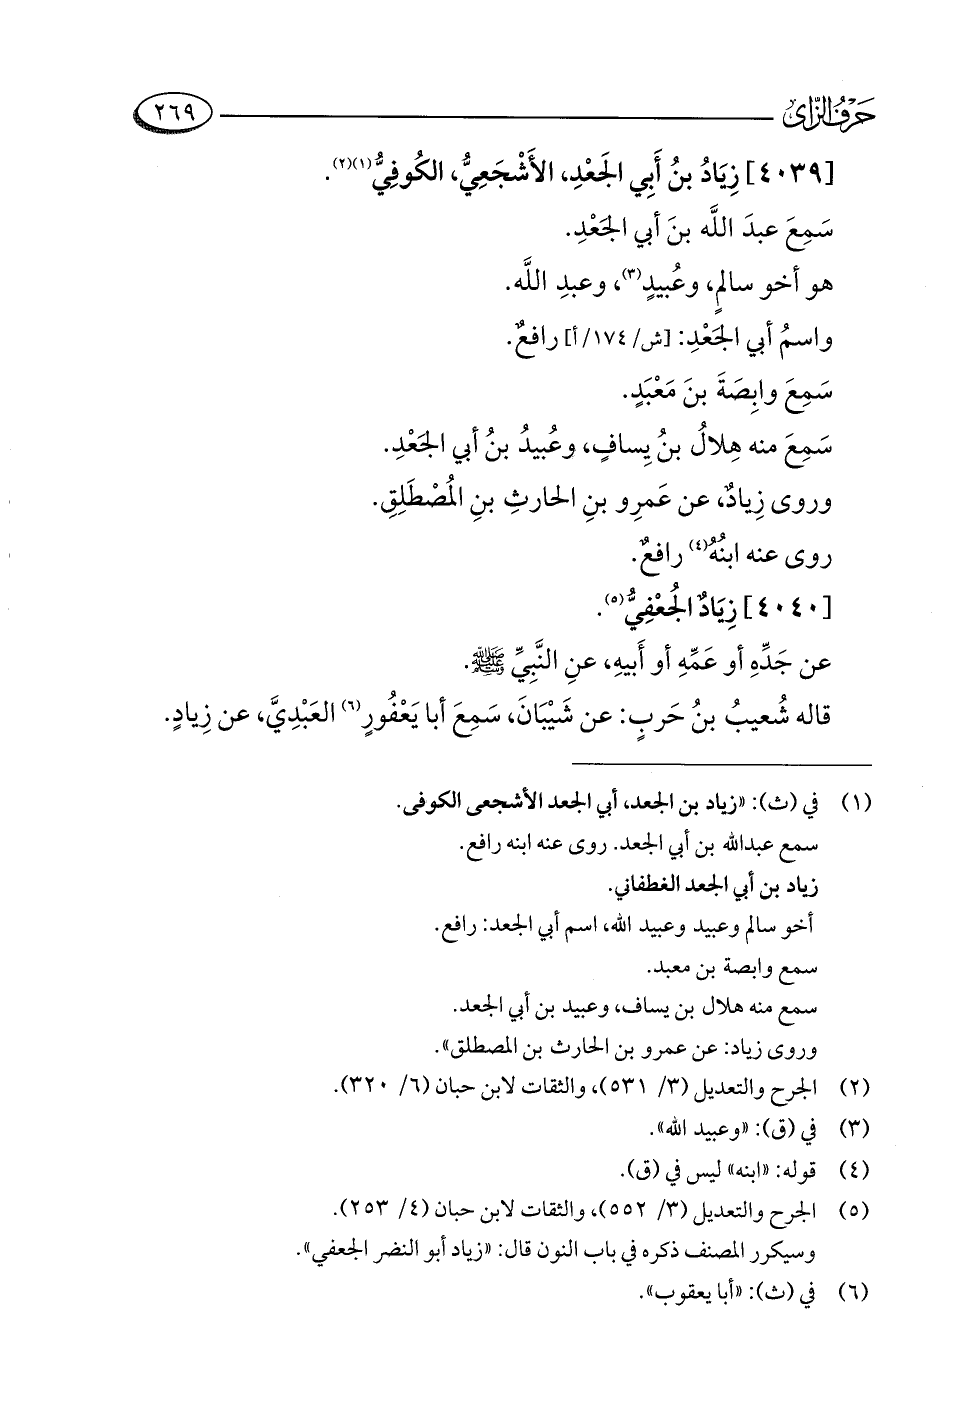 حَرْفُ الزَّاى
٢٦٩
[٤٠٣٩] زِيَادُ بنُ أَبِي الجَعْدِ، الأَشْجَعِيُّ، الكُوفِيُّ(١)(٢).
سَمِعَ عبدَ اللَّه بنَ أبي الجَعْدِ.
هو أخو سالمٍ، وعُبيدٍ(٣)، وعبدِ اللَّه.
واسمُ أبي الجَعْدِ: [ش/ ١٧٤/ أ] رافعٌ.
سَمِعَ وابِصَةَ بنَ مَعْبَدٍ.
سَمِعَ منه هِلالُ بنُ يِسافٍ، وعُبيدُ بنُ أبي الجَعْدِ.
وروى زِيادٌ، عن عَمرِو بنِ الحارثِ بنِ المُصْطَلِقِ.
روى عنه ابنُهُ(٤) رافعٌ.
[٤٠٤٠] زِيَادٌ الجُعْفِيُّ(٥).
عن جَدِّهِ أو عَمِّهِ أو أَبيهِ، عنِ النَّبِيِّ ﷺ.
قاله شُعيبُ بنُ حَربٍ: عن شَيْبَانَ، سَمِعَ أبا يَعْفُورٍ(٦) العَبْدِيَّ، عن زِيادٍ.
(١) في (ث): «زياد بن الجعد، أبي الجعد الأشجعى الكوفى.
سمع عبدالله بن أبي الجعد. روى عنه ابنه رافع.
زياد بن أبي الجعد الغطفاني.
أخو سالم وعبيد وعبيد الله، اسم أبي الجعد: رافع.
سمع وابصة بن معبد.
سمع منه هلال بن يساف، وعبيد بن أبي الجعد.
وروى زياد: عن عمرو بن الحارث بن المصطلق».
(٢) الجرح والتعديل (٣/ ٥٣١)، والثقات لابن حبان (٦/ ٣٢٠).
(٣) في (ق): «وعبيد الله».
(٤) قوله: «ابنه» ليس في (ق).
(٥) الجرح والتعديل (٣/ ٥٥٢)، والثقات لابن حبان (٤/ ٢٥٣).
وسيكرر المصنف ذكره في باب النون قال: «زياد أبو النضر الجعفي».
(٦) في (ث): «أبا يعقوب».